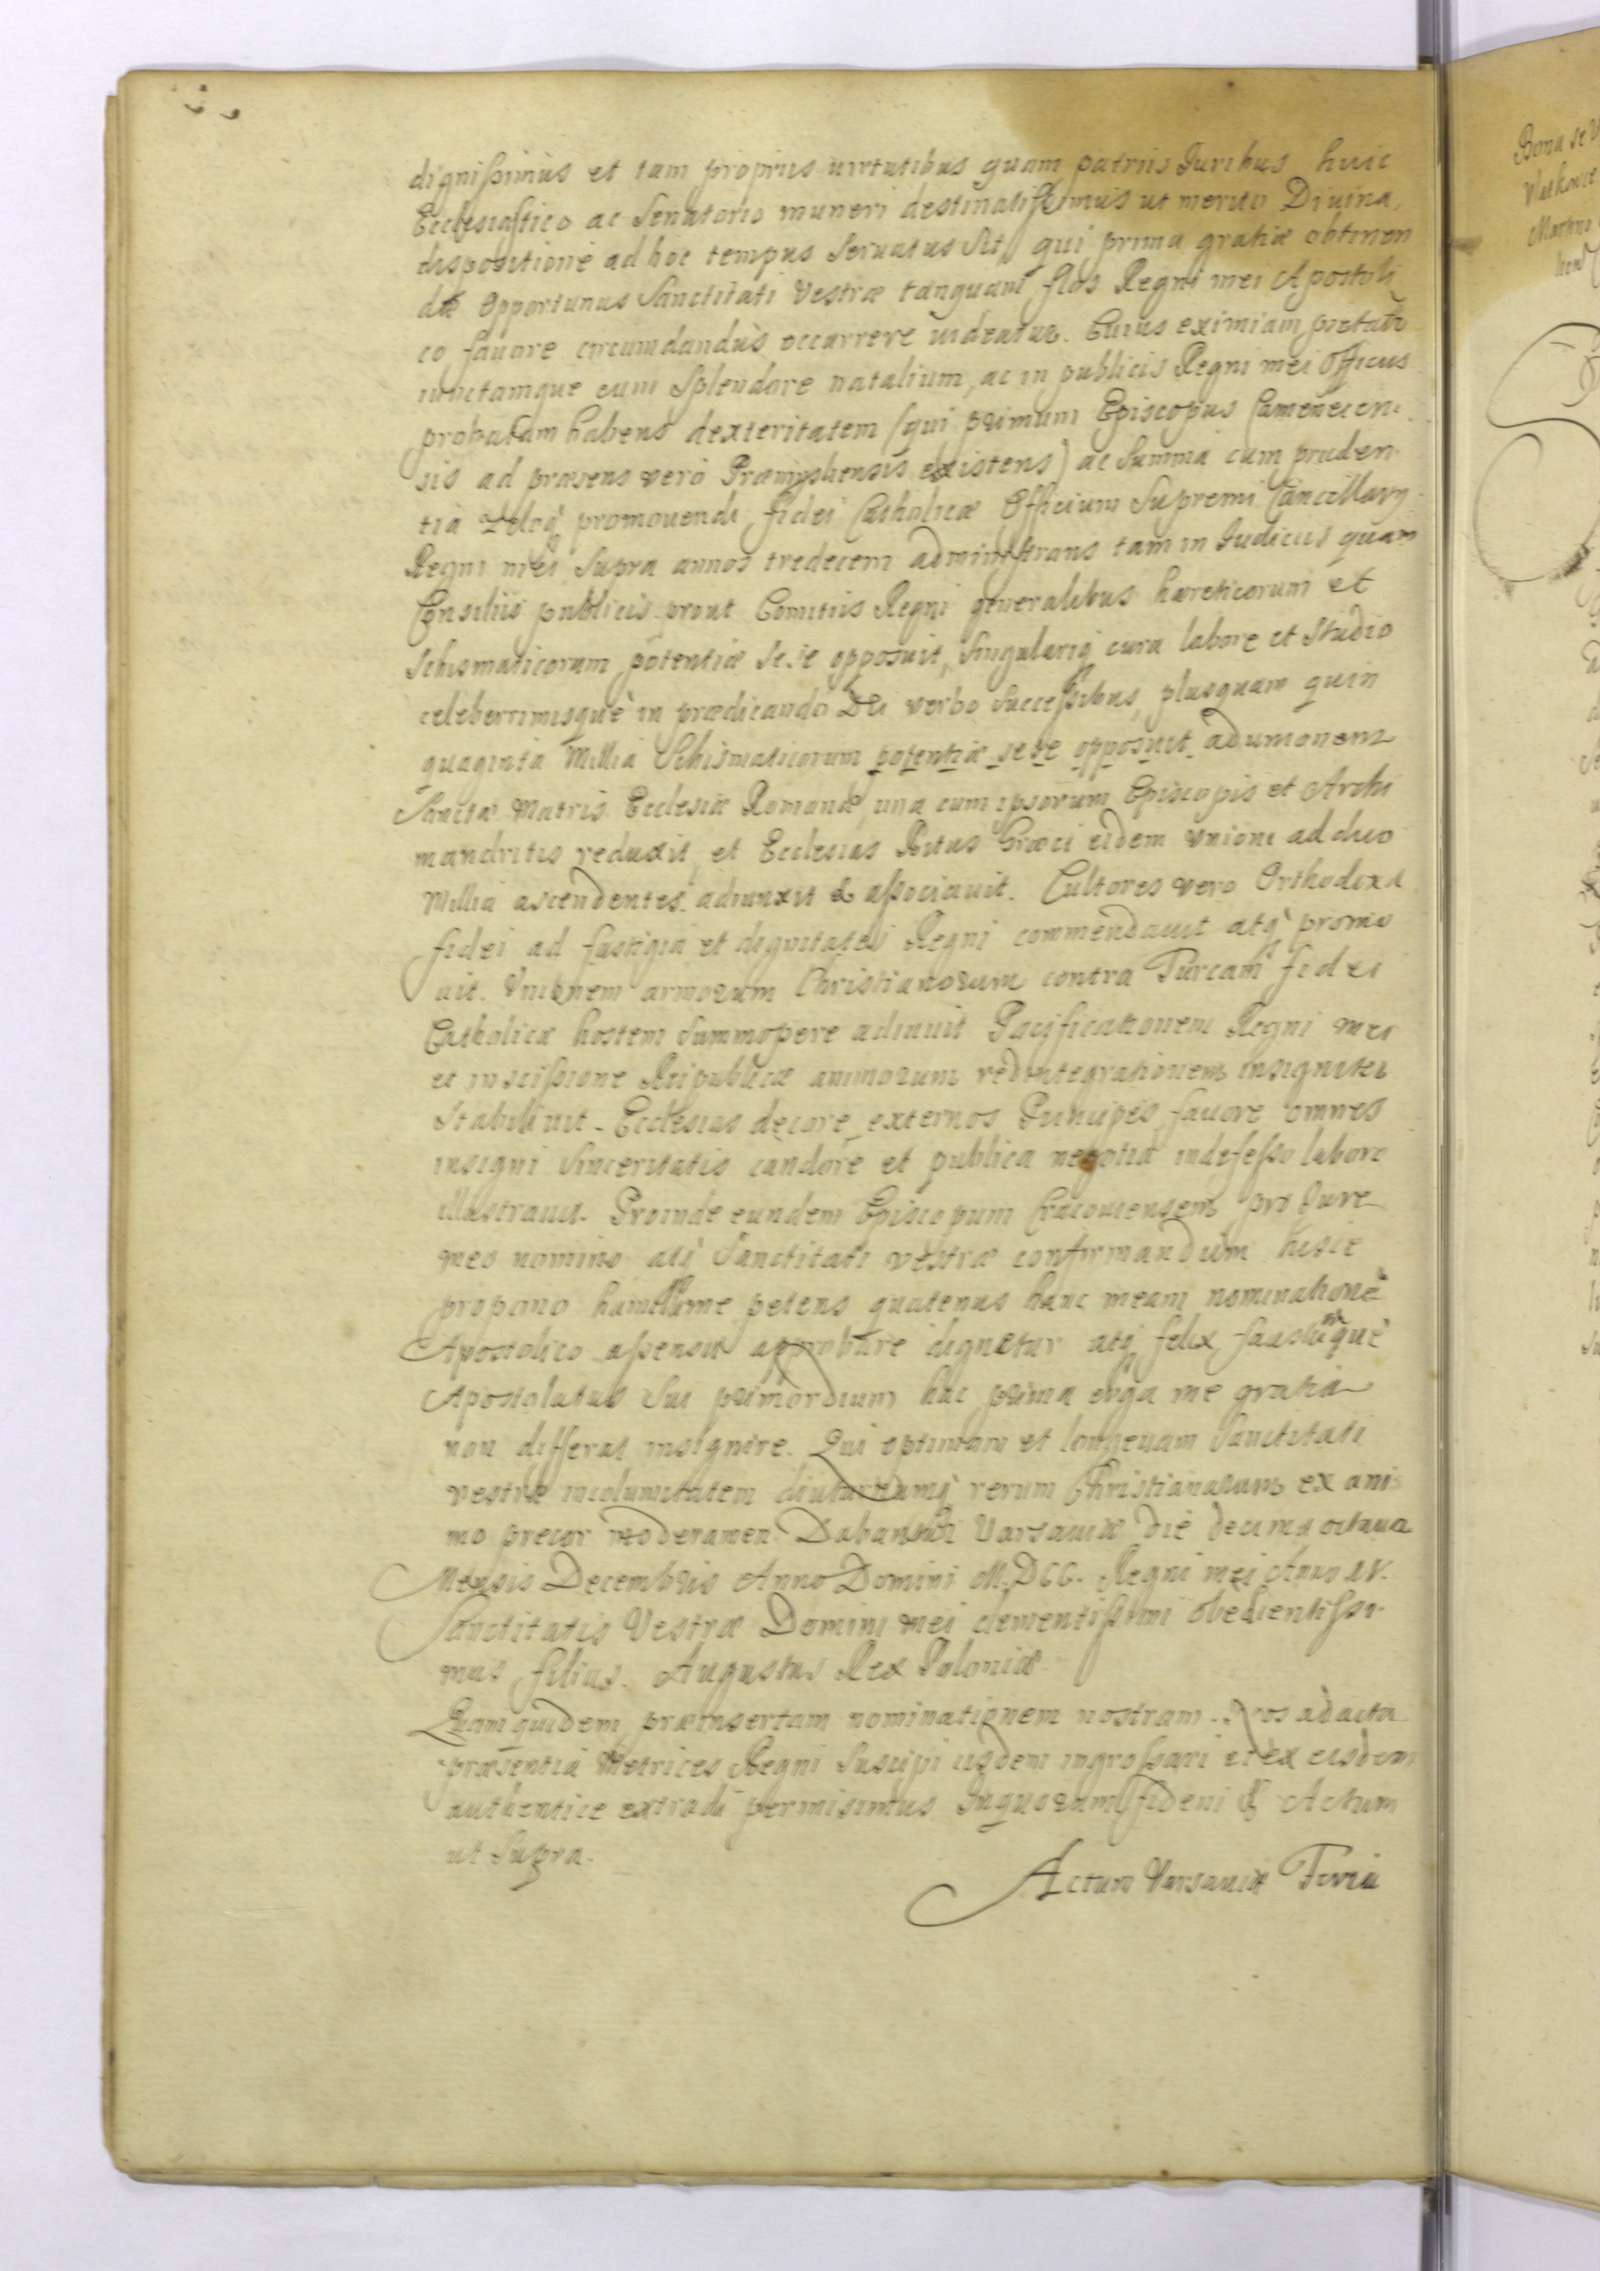 dignissimus et tam proprijs virtutibus quam patriis Juribus huic
Ecclesiastico ac Senatorio muneri destinatissimus ut merito Divina
dispositione ad hoc tempus servatus sit, qui prima gratiæ obtinen
dæ opportunus Sanctitati Vestræ tanquam flos Regni mei Apostoli
co favore circumdandus occurrere videatur. Cuius eximiam pietatē
iunctamque cum Splendore natalium, ac in publicis Regni mei Officiis
probatam habens dexteritatem (qui primum Episcopus Cameneien
sis ad præsens verò Præmysliensis existens) ac summa cum pruden
tia Zeloq̀ promovendi fidei Catholicæ Officium Supremi Cancellarij
Regni mei supra annos tredecem administrans tam in Iudiciis quam
Consiliis publicis prout Comitiis Regni generalibus hæreticorum et
Schismaticorum potentiæ sese opposuit, Singulariq̀ cura labore et Studio
celeberrimisquè in prædicando Dei verbo successibus, plusquam quin
quaginta Millia Schismaticorum potentiæ se se opposuit ad unionem
Sanctæ Matris Ecclesiæ Romanæ, una cum ipsorum Episcopis et Archi
mandritis reduxit, et Ecclesias Ritus Græci eidem Unioni ad duo
Millia ascendentes adiunxit & associavit. Cultores vero Orthodoxæ
fidei ad fastigia et dignitates Regni commendavit atq̀ promo
vit. Unionem armorum Christianorum contra Turcam fidei
Catholicæ hostem summopere adiuvit Pacificationem Regni mei
et in scissione Reipublicæ animorum redintegrationem insigniter
Stabilivit. Ecclesias decore, externos Principes favore omnes
insigni Sinceritatis candore et publica negotia indefesso labore
illustravit. Proinde eundem Episcopum Cracoviensem pro Jure
meo nomino atq̀ Sanctitati vestræ confirmandum hisce
propono humillime petens quatenus hanc meam nominationē
Apostolico assensu approbare dignetur atq̀ felix faustumquè
Apostolatus Sui primordium hac prima erga me gratia
non differat insignire. Qui optimam et longevam Sanctitati
vestræ incolumitatem diuturnumq̀ rerum Christianarum ex ani
mo precor moderamen. Dabantur Varsaviæ die decima octava
Mensis Decembris Anno Domini M.DCC. Regni mei Anno IV.
Sanctitatis Vestræ Domini mei clementissimi obedientissi
mus filius. Augustus Rex Poloniæ
Quam quidem præinsertam nominationem nostram. Nos ad acta
præsentia Metrices Regni suscipi iisdem ingrossari et ex eisdem
authentice extradi permisimus In quorum fidem & Actum
ut supra.
Actum Varsaviæ Feria
Bona